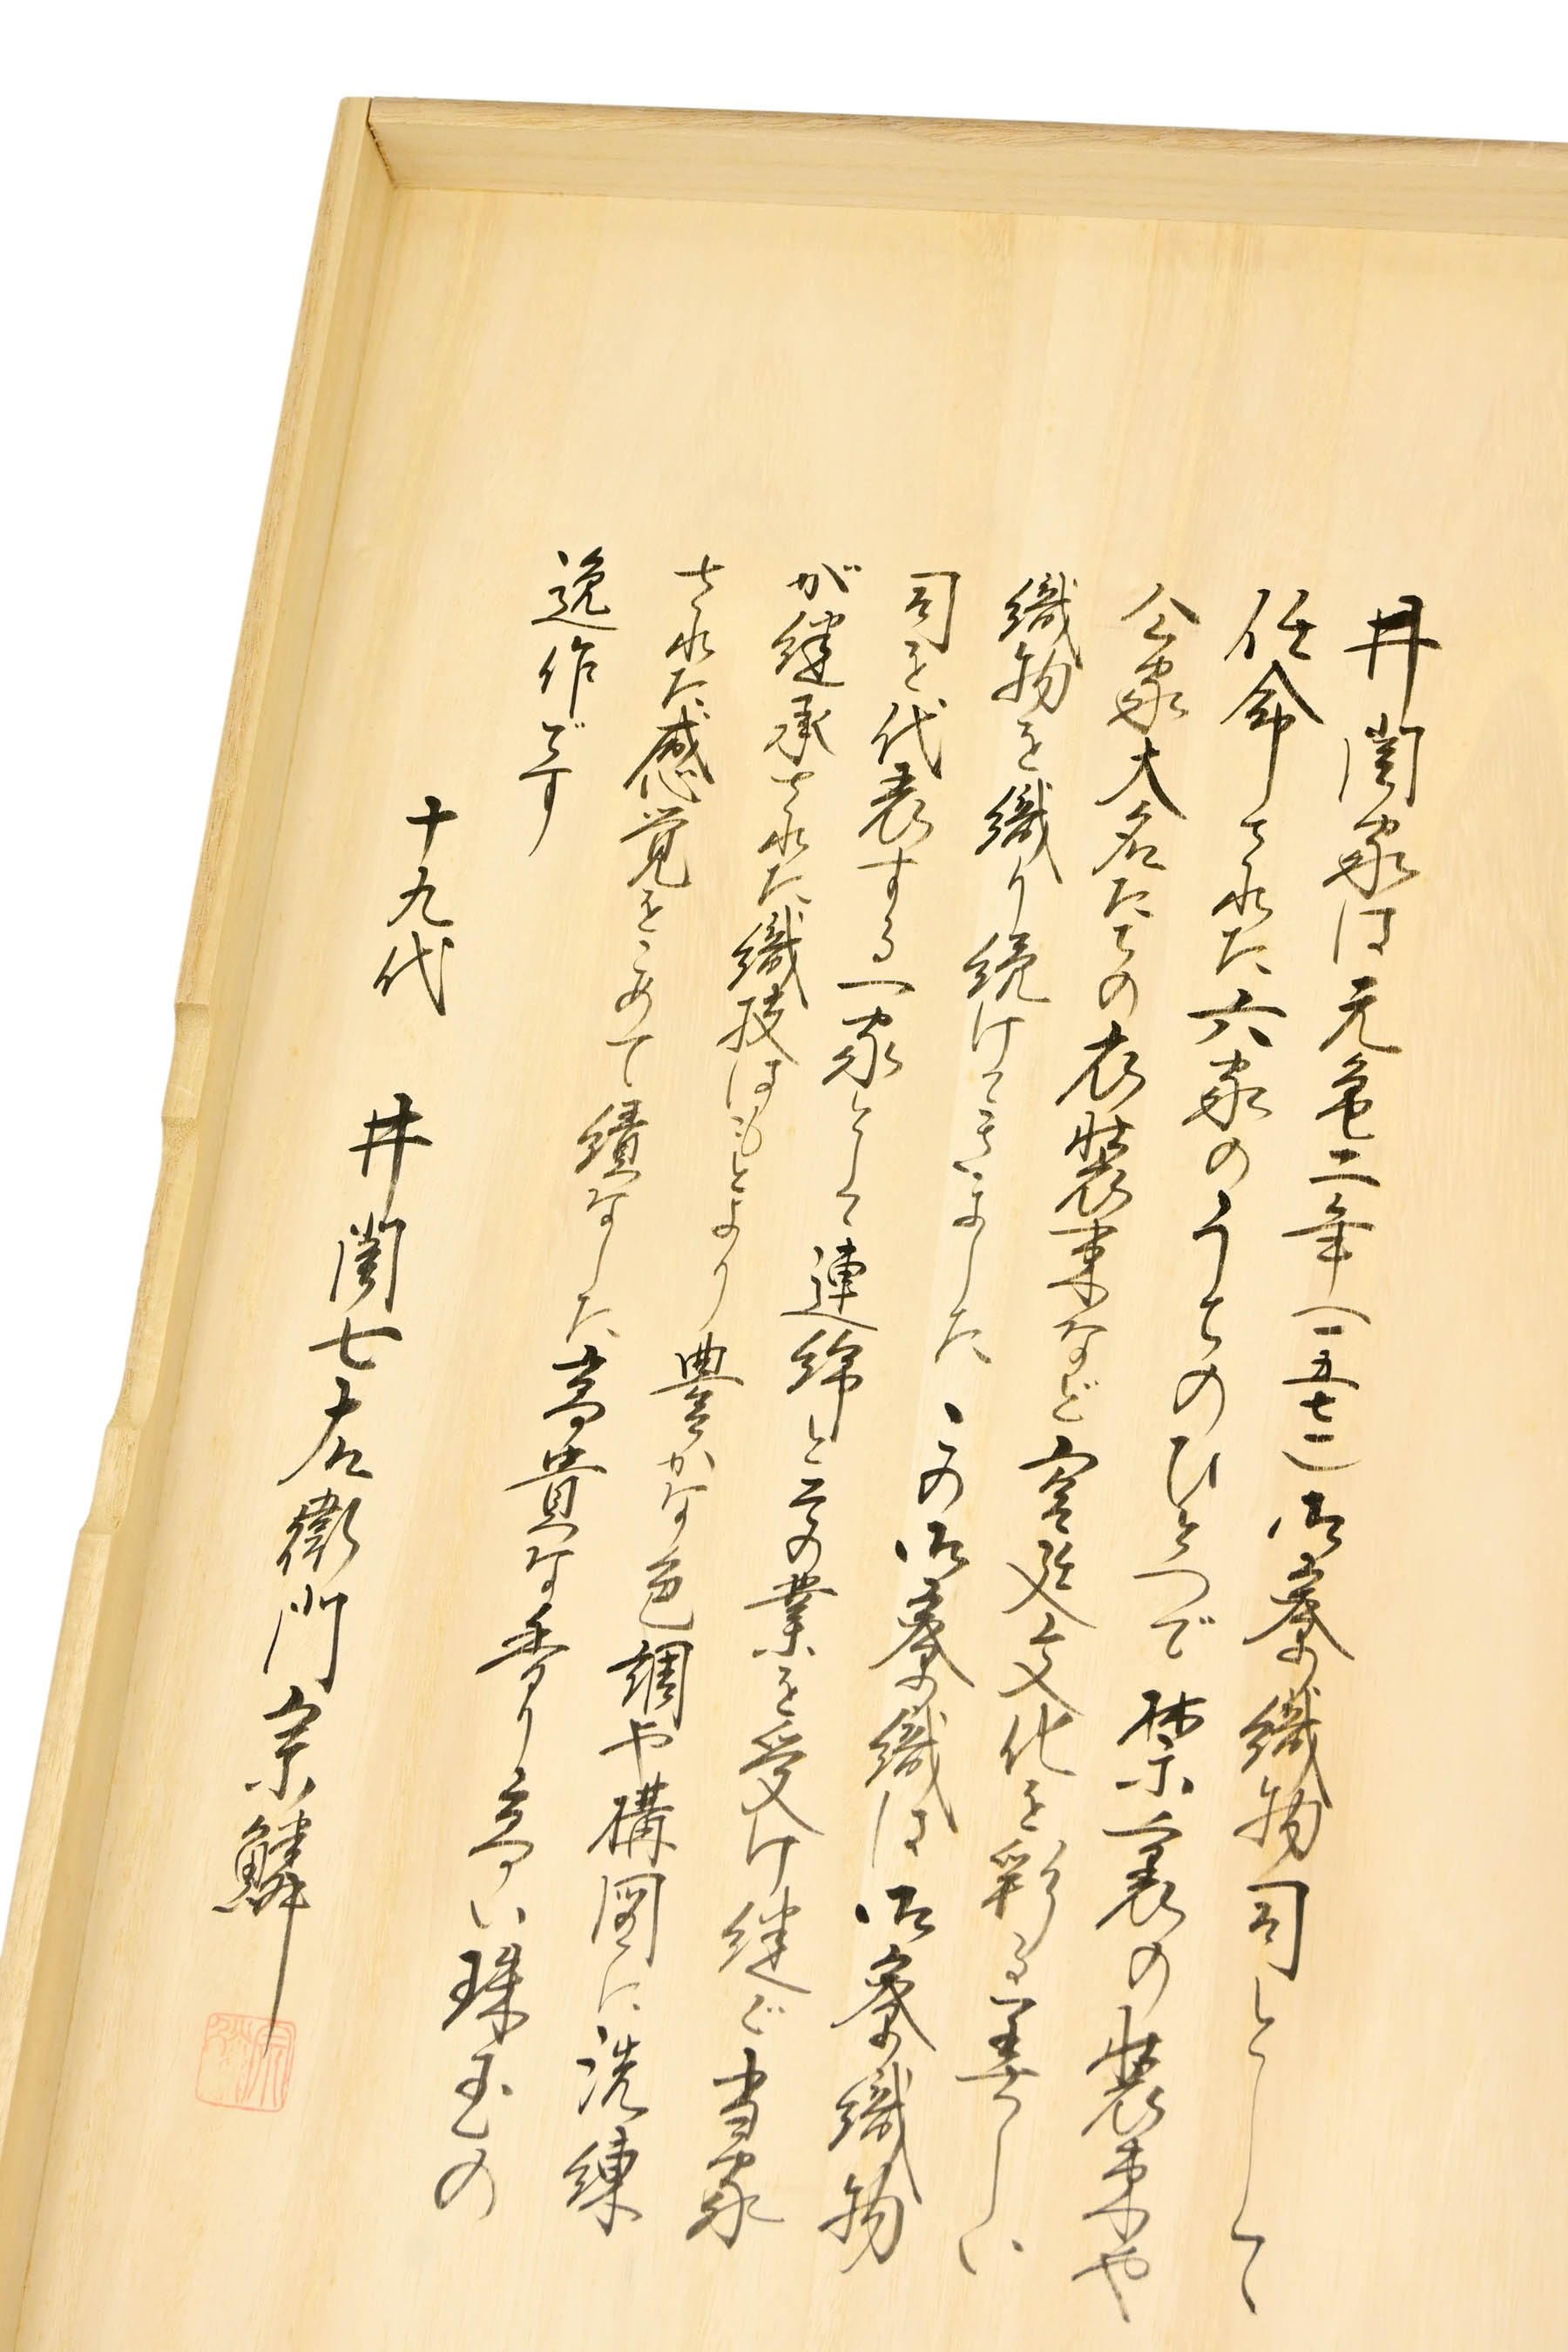 井関家は元亀二年(一五七一)御寮織物司として
任命された六家のうちのひとつで禁裏の装束や
公家大名たちの衣装束など宮廷文化を彩る美しい
織物を織り続けてきました この御寮織は御寮織物
司を代表する一家として連綿とその業を受け継ぐ当家
が継承された織技はもとより豊かな色調や構図に洗練
された感覚をこめて績なした高貴な香り高い珠玉の
逸作です
十九代 井関七右衛門宗鱗